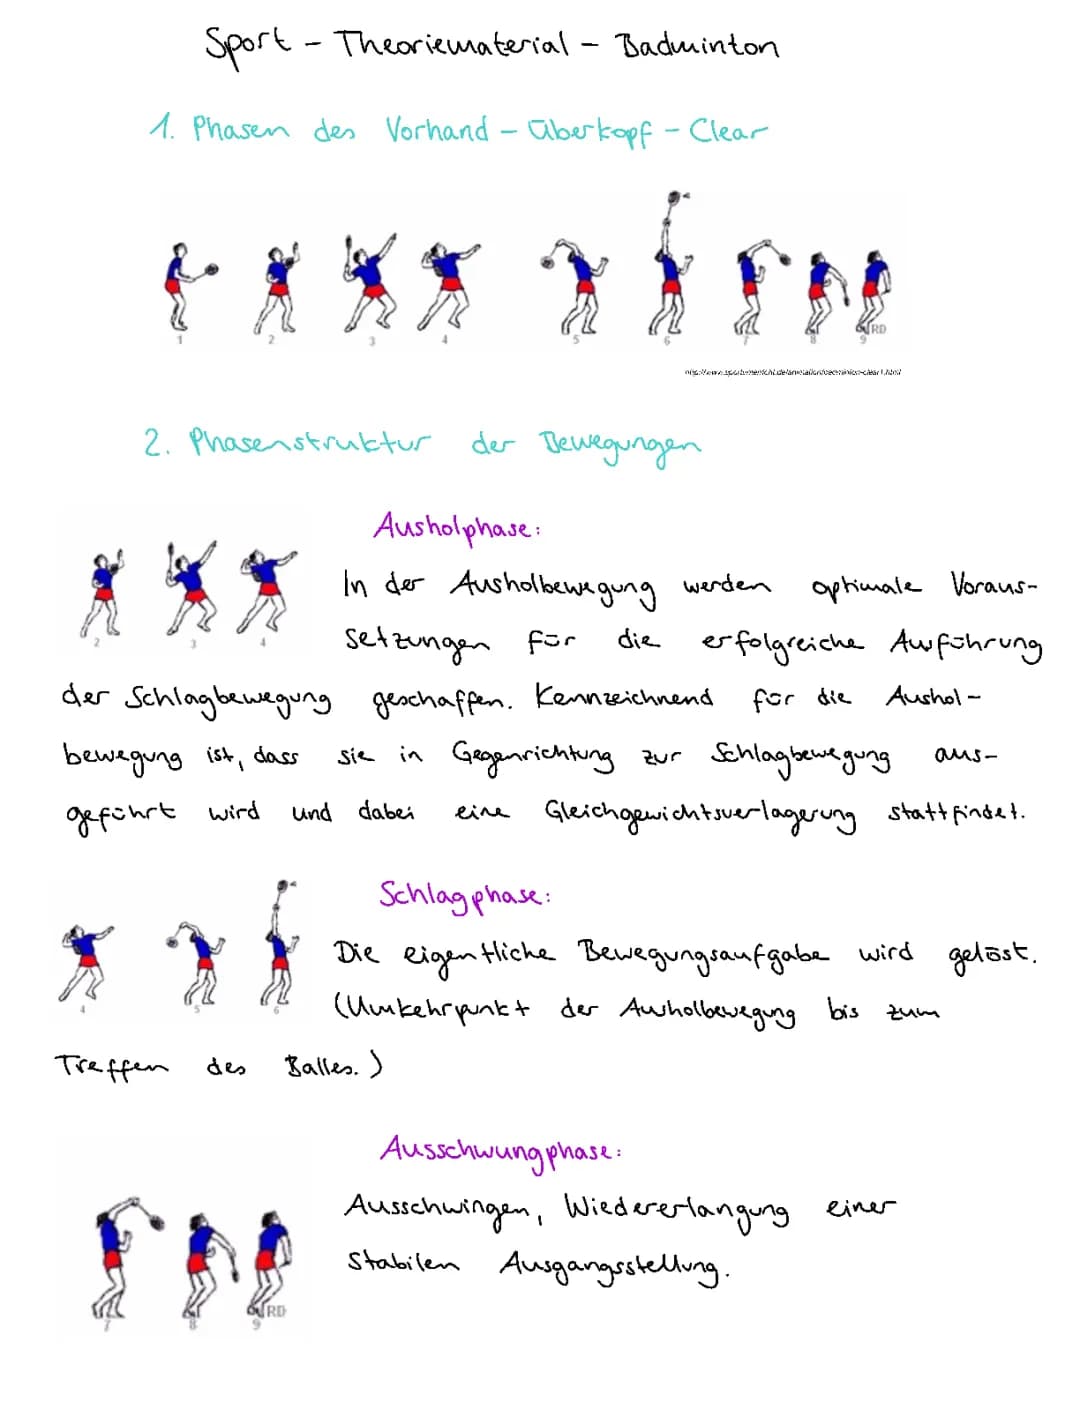 Sport - Theoriematerial - Badminton
1. Phasen des Vorhand - Überkopf - Clear
1 2 3 4 5 6 7 8 9
RD
2. Phasenstruktur der Bewegungen
Ausholphase:
In der Ausholbewegung werden optimale Voraus-
setzungen für die erfolgreiche Ausführung
2 3 4
der Schlagbewegung geschaffen. Kennzeichnend für die Aushol-
bewegung ist, dass sie in Gegenrichtung zur Schlagbewegung aus-
geführt wird und dabei eine Gleichgewichtsverlagerung stattfindet.
Schlagphase:
Die eigentliche Bewegungsaufgabe wird gelöst.
(Umkehrpunkt der Ausholbewegung bis zum
4 5 6
Treffen des Balles.)
Ausschwungphase:
Ausschwingen, Wiedererlangung einer
stabilen Ausgangsstellung.
RD
7 8 9